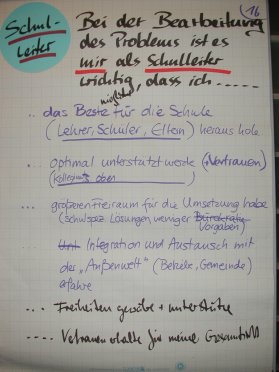 Schul-
leiter
16
Bei der Bearbeitung
des Problems ist es
mir als Schulleiter
wichtig, dass ich .....
möglichst
.. das Beste für die Schule
(Lehrer, Schüler, Eltern) heraus hole
... optimal unterstützt werde (Vertrauen)
(Kollegium, oben)
... größeren Freiraum für die Umsetzung habe
(schulspez. Lösungen, weniger Bürokratie
Vorgaben)
... Unt Integration und Austausch mit
der „Außenwelt" (Betriebe, Gemeinde)
erfahre
... Freiheiten gewähre + unterstütze
.... Vertrauen erhalte für meine